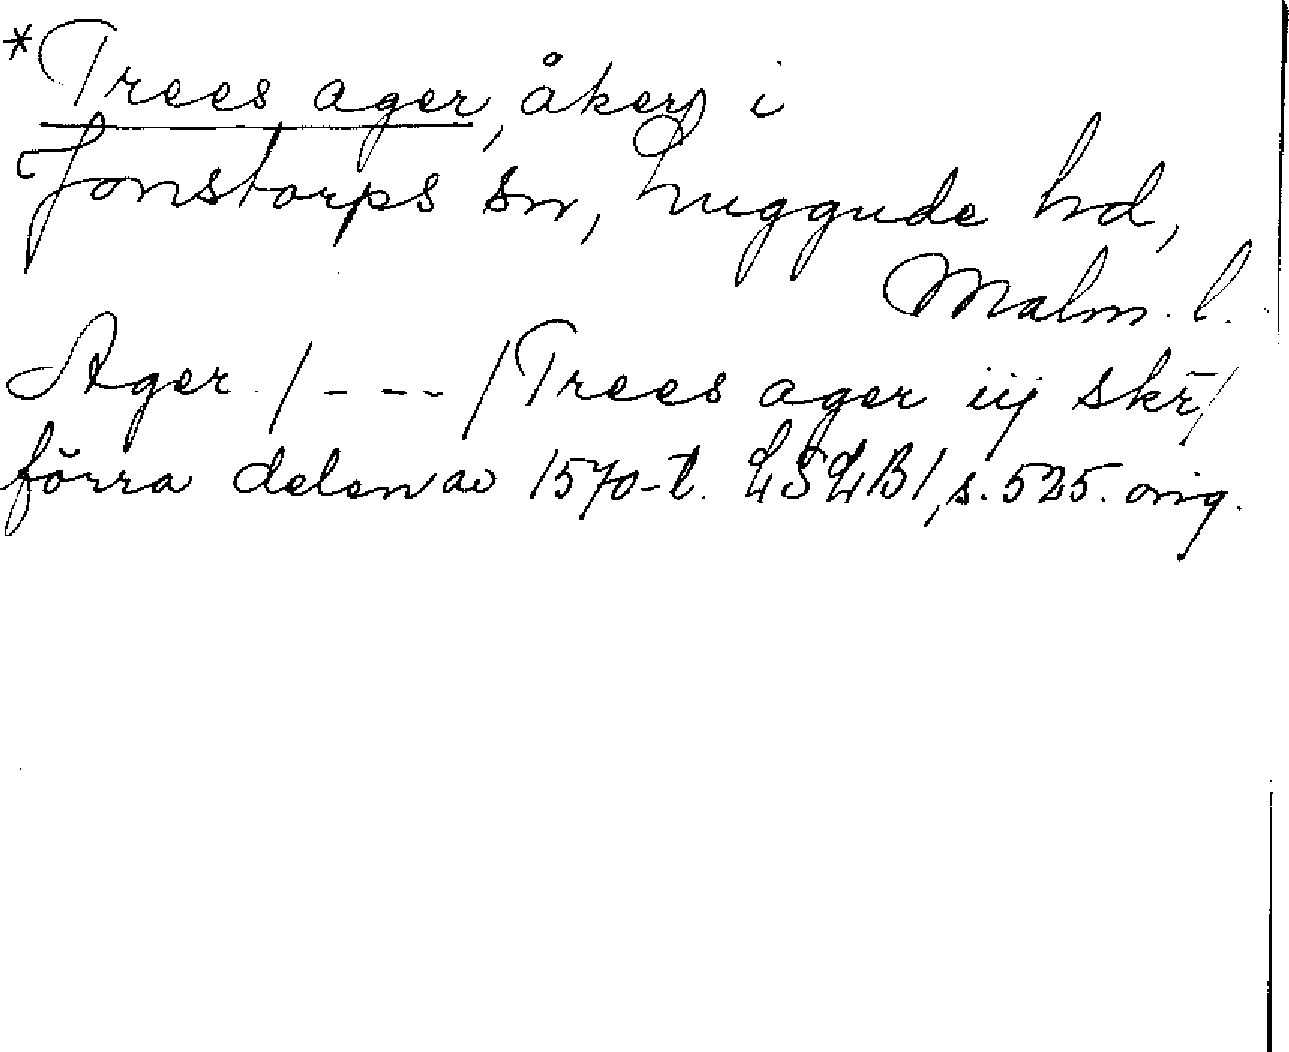 *Trees ager, åker i
Jonstorps sn, Luggude hd,
Malm. l.
Ager /---/ Trees ager iij skr̄/
förra delen av 1570-t. LSLB1, s. 525. orig.